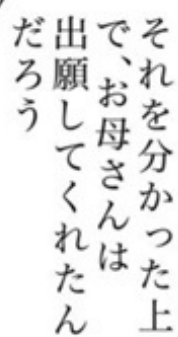 それを分かった上
で、お母さんは
出願してくれたん
だろう